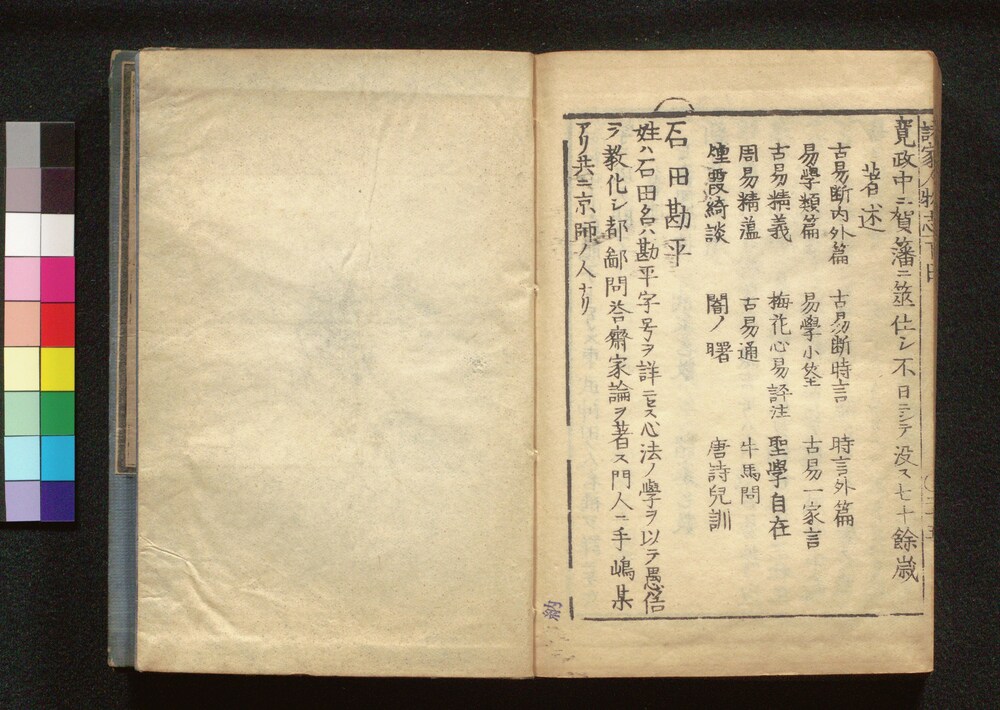 諸家人物志下
寛政中ニ賀藩ニ筮仕シ不日ニシテ没ス七十餘歳
著述
古易断内外篇 古易断時言 時言外篇
易學類篇 易學小筌 古易一家言
古易精義 梅花心易評注 聖學自在
周易精蘊 古易通 牛馬問
煙霞綺談 闇ノ曙 唐詩兒訓
石田勘平
姓ハ石田名ハ勘平字号ヲ詳ニセス心法ノ學ヲ以テ愚俗
ヲ教化シ都鄙問荅齊家論ヲ著ス門人ニ手嶋某
アリ共ニ京師ノ人ナリ
納